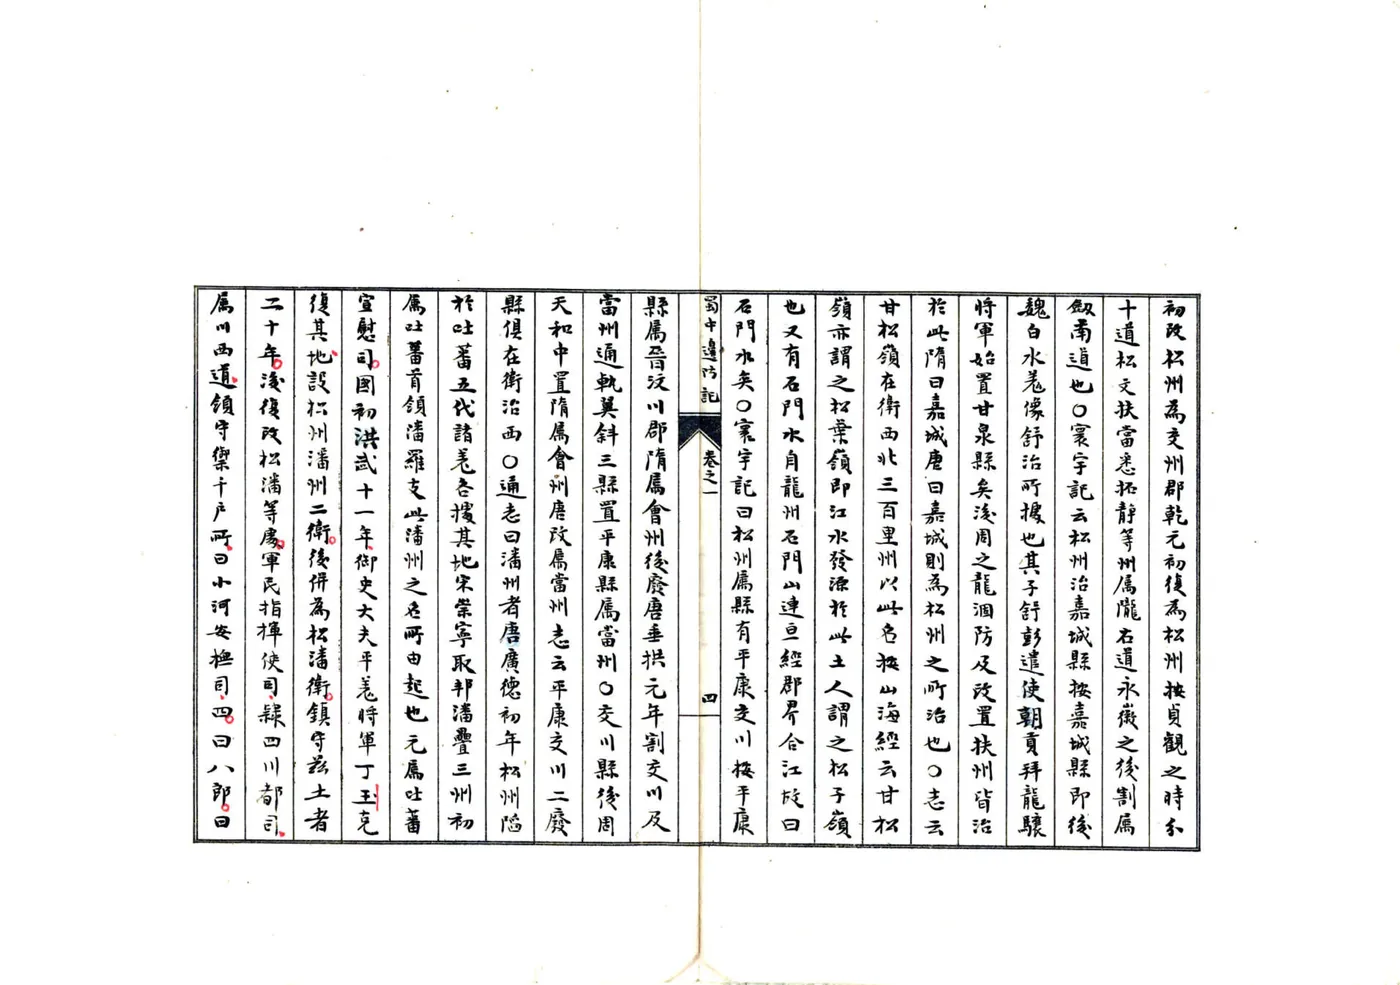 初改松州為交州郡乾元初復為松州按貞觀之時分
十道松文扶當悉柘靜等州属隴右道永徽之後割属
劔南道也〇寰宇記云松州治嘉城縣按嘉城縣即後
魏白水羗像舒治所據也其子舒彭遣使朝貢拜龍驤
將軍始置甘泉縣矣後周之龍涸防及改置扶州皆治
於此隋曰嘉城唐曰嘉城則為松州之所治也〇志云
甘松嶺在衛西北三百里州以此名按山海經云甘松
嶺亦謂之松葉嶺即江水發源於此土人謂之松子嶺
也又有石門水自龍州石門山連亘經郡界合江故曰
石門水矣〇寰宇記曰松州属縣有平康交川按平康
蜀中邊防記 卷之一 四
縣属晉汶川郡隋属會州後廢唐垂拱元年割交川及
當州通軌翼斜三縣置平康縣属當州〇交川縣後周
天和中置隋属會州唐改属當州志云平康交川二廢
縣俱在衛治西〇通志曰潘州者唐廣德初年松州陷
於吐蕃五代諸羗各據其地宋崇寧取邦潘疊三州初
属吐蕃首領潘羅支此潘州之名所由起也元属吐蕃
宣慰司國初洪武十一年御史大夫平羗將軍丁玉克
復其地設松州潘州二衛後併為松潘衛鎮守茲土者
二十年後復改松潘等處軍民指揮使司隸四川都司
属川西道領守禦千户所曰小河安撫司四曰八郎曰